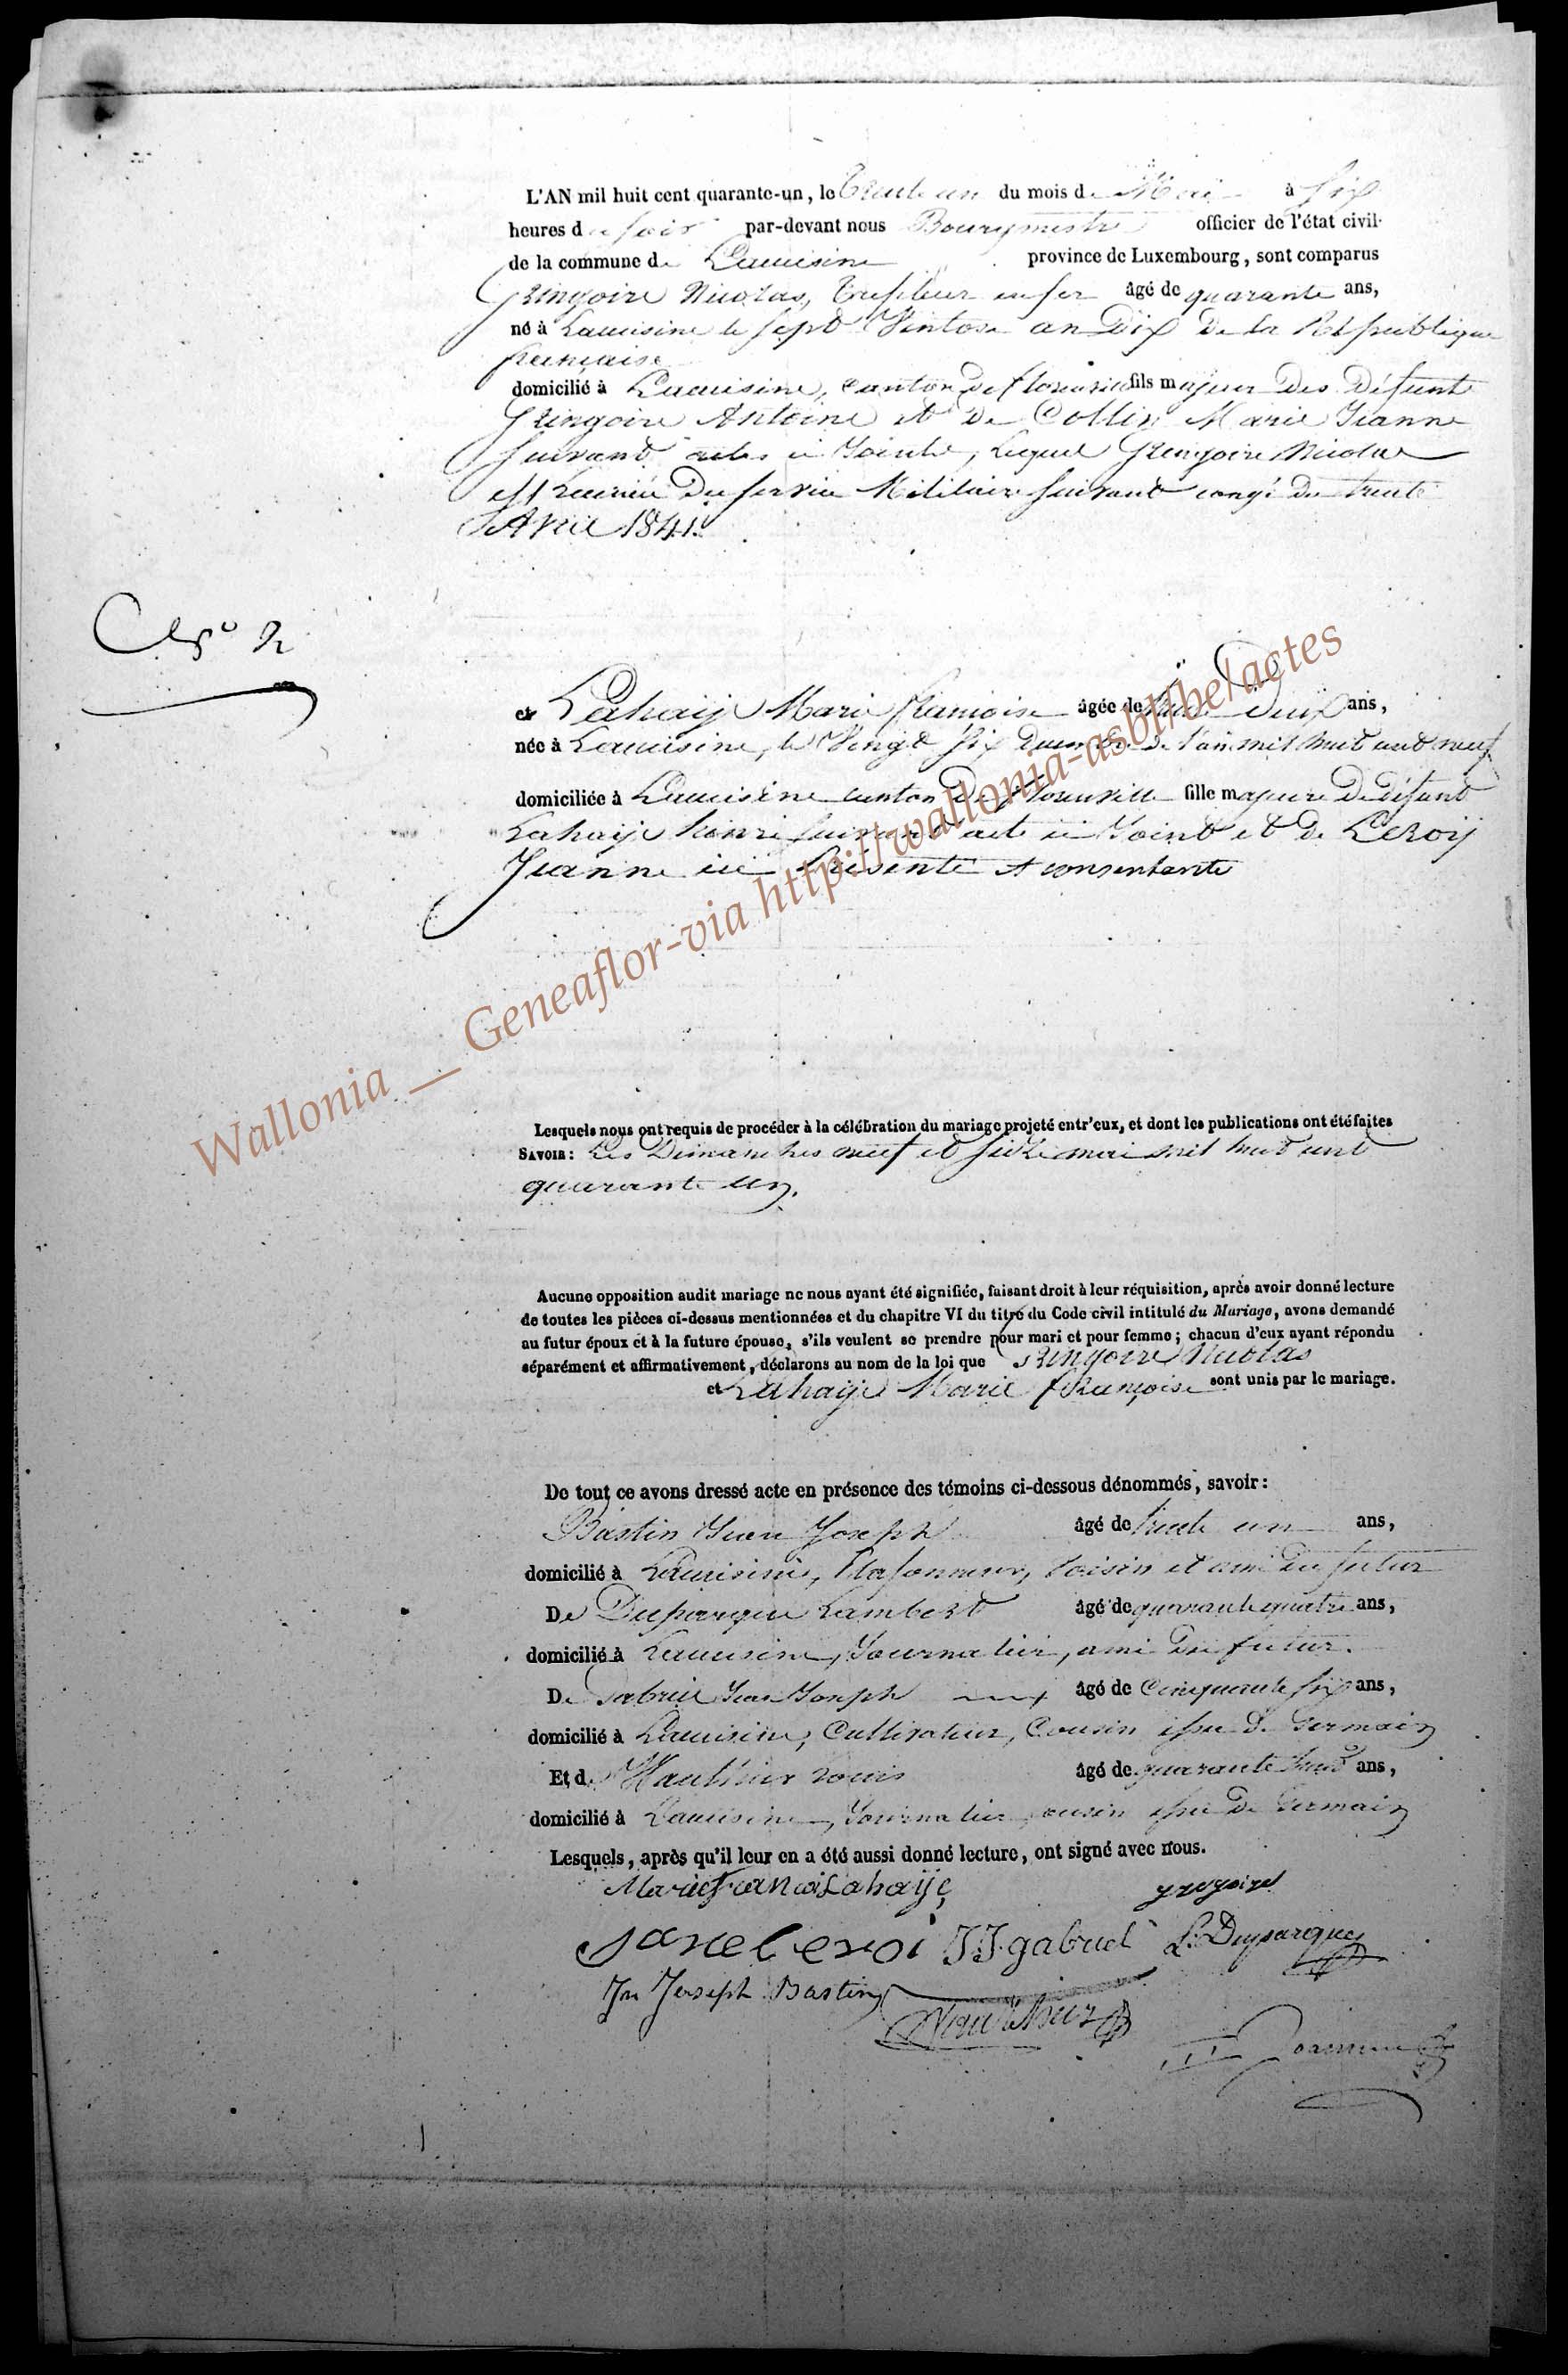 L'AN mil huit cent quarante-un, le trente un du mois de Mai à six
heures du soir par-devant nous Bourgmestre officier de l'état civil
de la commune de Lacuisine province de Luxembourg, sont comparus
Gringoire Nicolas, Trefileur en fer âgé de quarante ans,
né à Lacuisine le sept Ventose an Dix de la République
française
domicilié à Lacuisine, canton de florenville fils majeur des défunt
Gringoire Antoine et de Collin Marie Jeanne
suivant actes ci Joints, lequel Gringoire Nicolas
est du service Militaire suivant congé du trente
Avril 1841.
N° 2
et Lahaije Marie françoise âgée de trente Deux ans,
née à Lacuisine, le Vingt six de l'an mil huit cent neuf
domiciliée à Lacuisine canton de florenville fille majeure de défunt
Lahaije henri suivant acte ci Joint et de Leroij
Jeanne ici Présente et consentante
Lesquels nous ont requis de procéder à la célébration du mariage projeté entr'eux, et dont les publications ont été faites
SAVOIR: Les Dimanches neuf et seize mai mil huit cent
quarante un.
Aucune opposition audit mariage ne nous ayant été signifiée, faisant droit à leur réquisition, après avoir donné lecture
de toutes les pièces ci-dessus mentionnées et du chapitre VI du titre du Code civil intitulé du Mariage, avons demandé
au futur époux et à la future épouse, s'ils veulent se prendre pour mari et pour femme; chacun d'eux ayant répondu
séparément et affirmativement, déclarons au nom de la loi que Gringoire Nicolas
et Lahaije Marie françoise sont unis par le mariage.
De tout ce avons dressé acte en présence des témoins ci-dessous dénommés, savoir:
Bastin Jean Joseph âgé de trente un ans,
domicilié à Lacuisine, Plafonneur, voisin et ami du futur
De Duparque Lambert âgé de quarante quatre ans,
domicilié à Lacuisine, Journalier, ami du futur.
De Gabriel Jean Joseph âgé de Cinquante six ans,
domicilié à Lacuisine, Cultivateur, Cousin issu de Germain
Et de Wauthier Louis âgé de quarante huit ans,
domicilié à Lacuisine, Journalier cousin issu de Germain
Lesquels, après qu'il leur en a été aussi donné lecture, ont signé avec nous.
Marie francois Lahaije gregoire
Jane Leroi J J. gabriel L. Duparque
Jn Joseph Bastin
Wauthier
Wallonia __ Geneaflor-via http://wallonia-asbl.be/actes